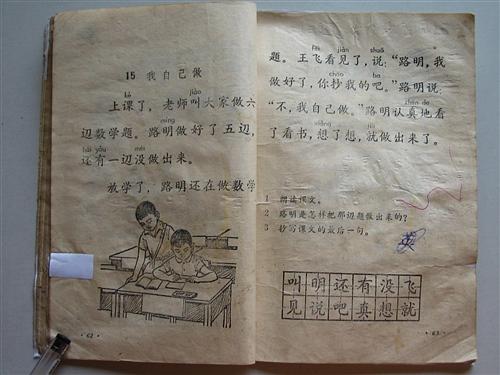 15 我自己做
kè jiào
上课了，老师叫大家做六
míng
辺数学题。路明做好了五辺，
hái yǒu méi
还有一辺没做出来。
放学了，路明还在做数学
·62·
fēi jiàn shuō
题。王飞看见了，说：“路明，我
chāo ba
做好了，你抄我的吧。”路明说：
zhēn de
“不，我自己做。”路明认真地看
xiǎng jiù
了看书，想了想，就做出来了。
1 朗读课文。
2 路明是怎样把那辺题做出来的？
3 抄写课文的最后一句。
叫明还有没飞
见说吧真想就
·63·